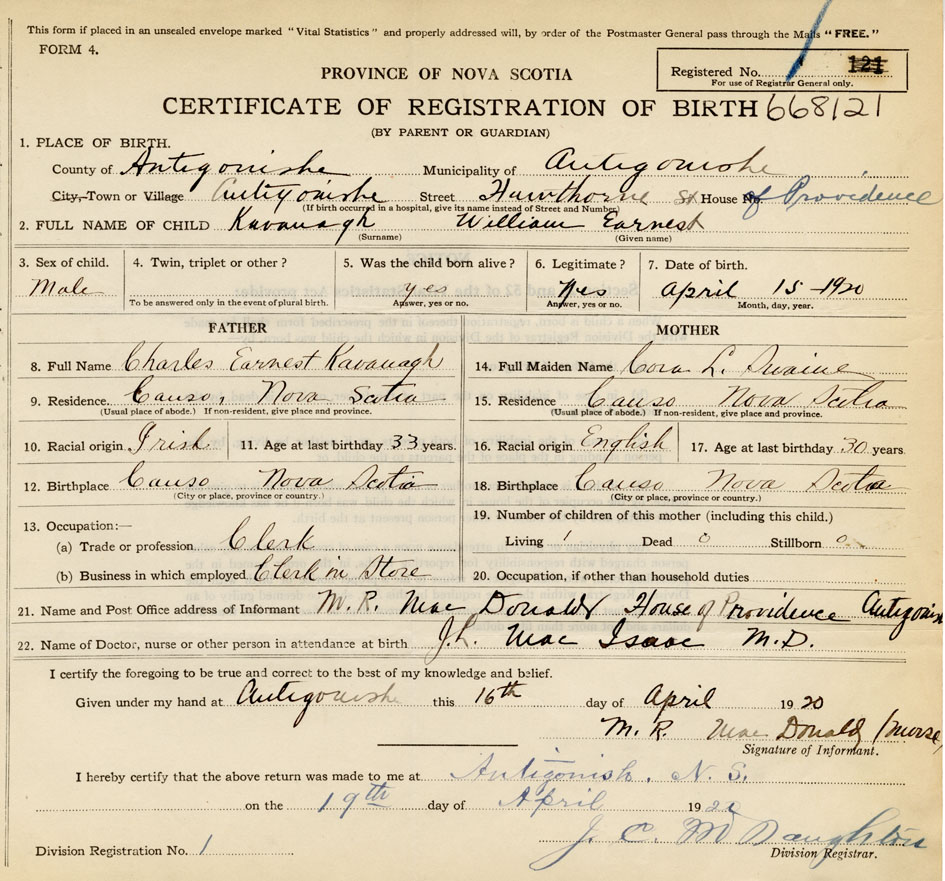 This form if placed in an unsealed envelope marked "Vital Statistics" and properly addressed will, by order of the Postmaster General pass through the Mails "FREE."
FORM 4.
Registered No. 121
For use of Registrar General only.
PROVINCE OF NOVA SCOTIA
CERTIFICATE OF REGISTRATION OF BIRTH 668121
(BY PARENT OR GUARDIAN)
1. PLACE OF BIRTH.
County of Antigonishe Municipality of Antigonishe
City, Town or Village Antigonishe Street Hawthorne St House No. of Providence
(If birth occurred in a hospital, give its name instead of Street and Number)
2. FULL NAME OF CHILD Kavanagh William Earnest
(Surname) (Given name)
3. Sex of child. 4. Twin, triplet or other? 5. Was the child born alive? 6. Legitimate? 7. Date of birth.
Male yes yes April 15 1920
To be answered only in the event of plural birth. Answer, yes or no. Answer, yes or no. Month, day, year.
FATHER MOTHER
8. Full Name Charles Earnest Kavanagh 14. Full Maiden Name Cora L. Swaine
9. Residence. Canso, Nova Scotia 15. Residence Canso Nova Scotia
(Usual place of abode.) If non-resident, give place and province. (Usual place of abode.) If non-resident, give place and province.
10. Racial origin Irish 11. Age at last birthday 33 years. 16. Racial origin English 17. Age at last birthday 30 years
12. Birthplace Canso Nova Scotia 18. Birthplace Canso Nova Scotia
(City or place, province or country.) (City or place, province or country.)
13. Occupation:— 19. Number of children of this mother (including this child.)
(a) Trade or profession Clerk Living 1 Dead 0 Stillborn 0
(b) Business in which employed Clerk in Store 20. Occupation, if other than household duties
21. Name and Post Office address of Informant M. R. Mac Donald House of Providence Antigonish
22. Name of Doctor, nurse or other person in attendance at birth J. L. Mac Isaac M.D.
I certify the foregoing to be true and correct to the best of my knowledge and belief.
Given under my hand at Antigonishe this 16th day of April 1920
M. R. Mac Donald (nurse)
Signature of Informant.
I hereby certify that the above return was made to me at Antigonish, N. S.
on the 19th day of April 1920
J. C. McNaughton
Division Registration No. 1 Division Registrar.